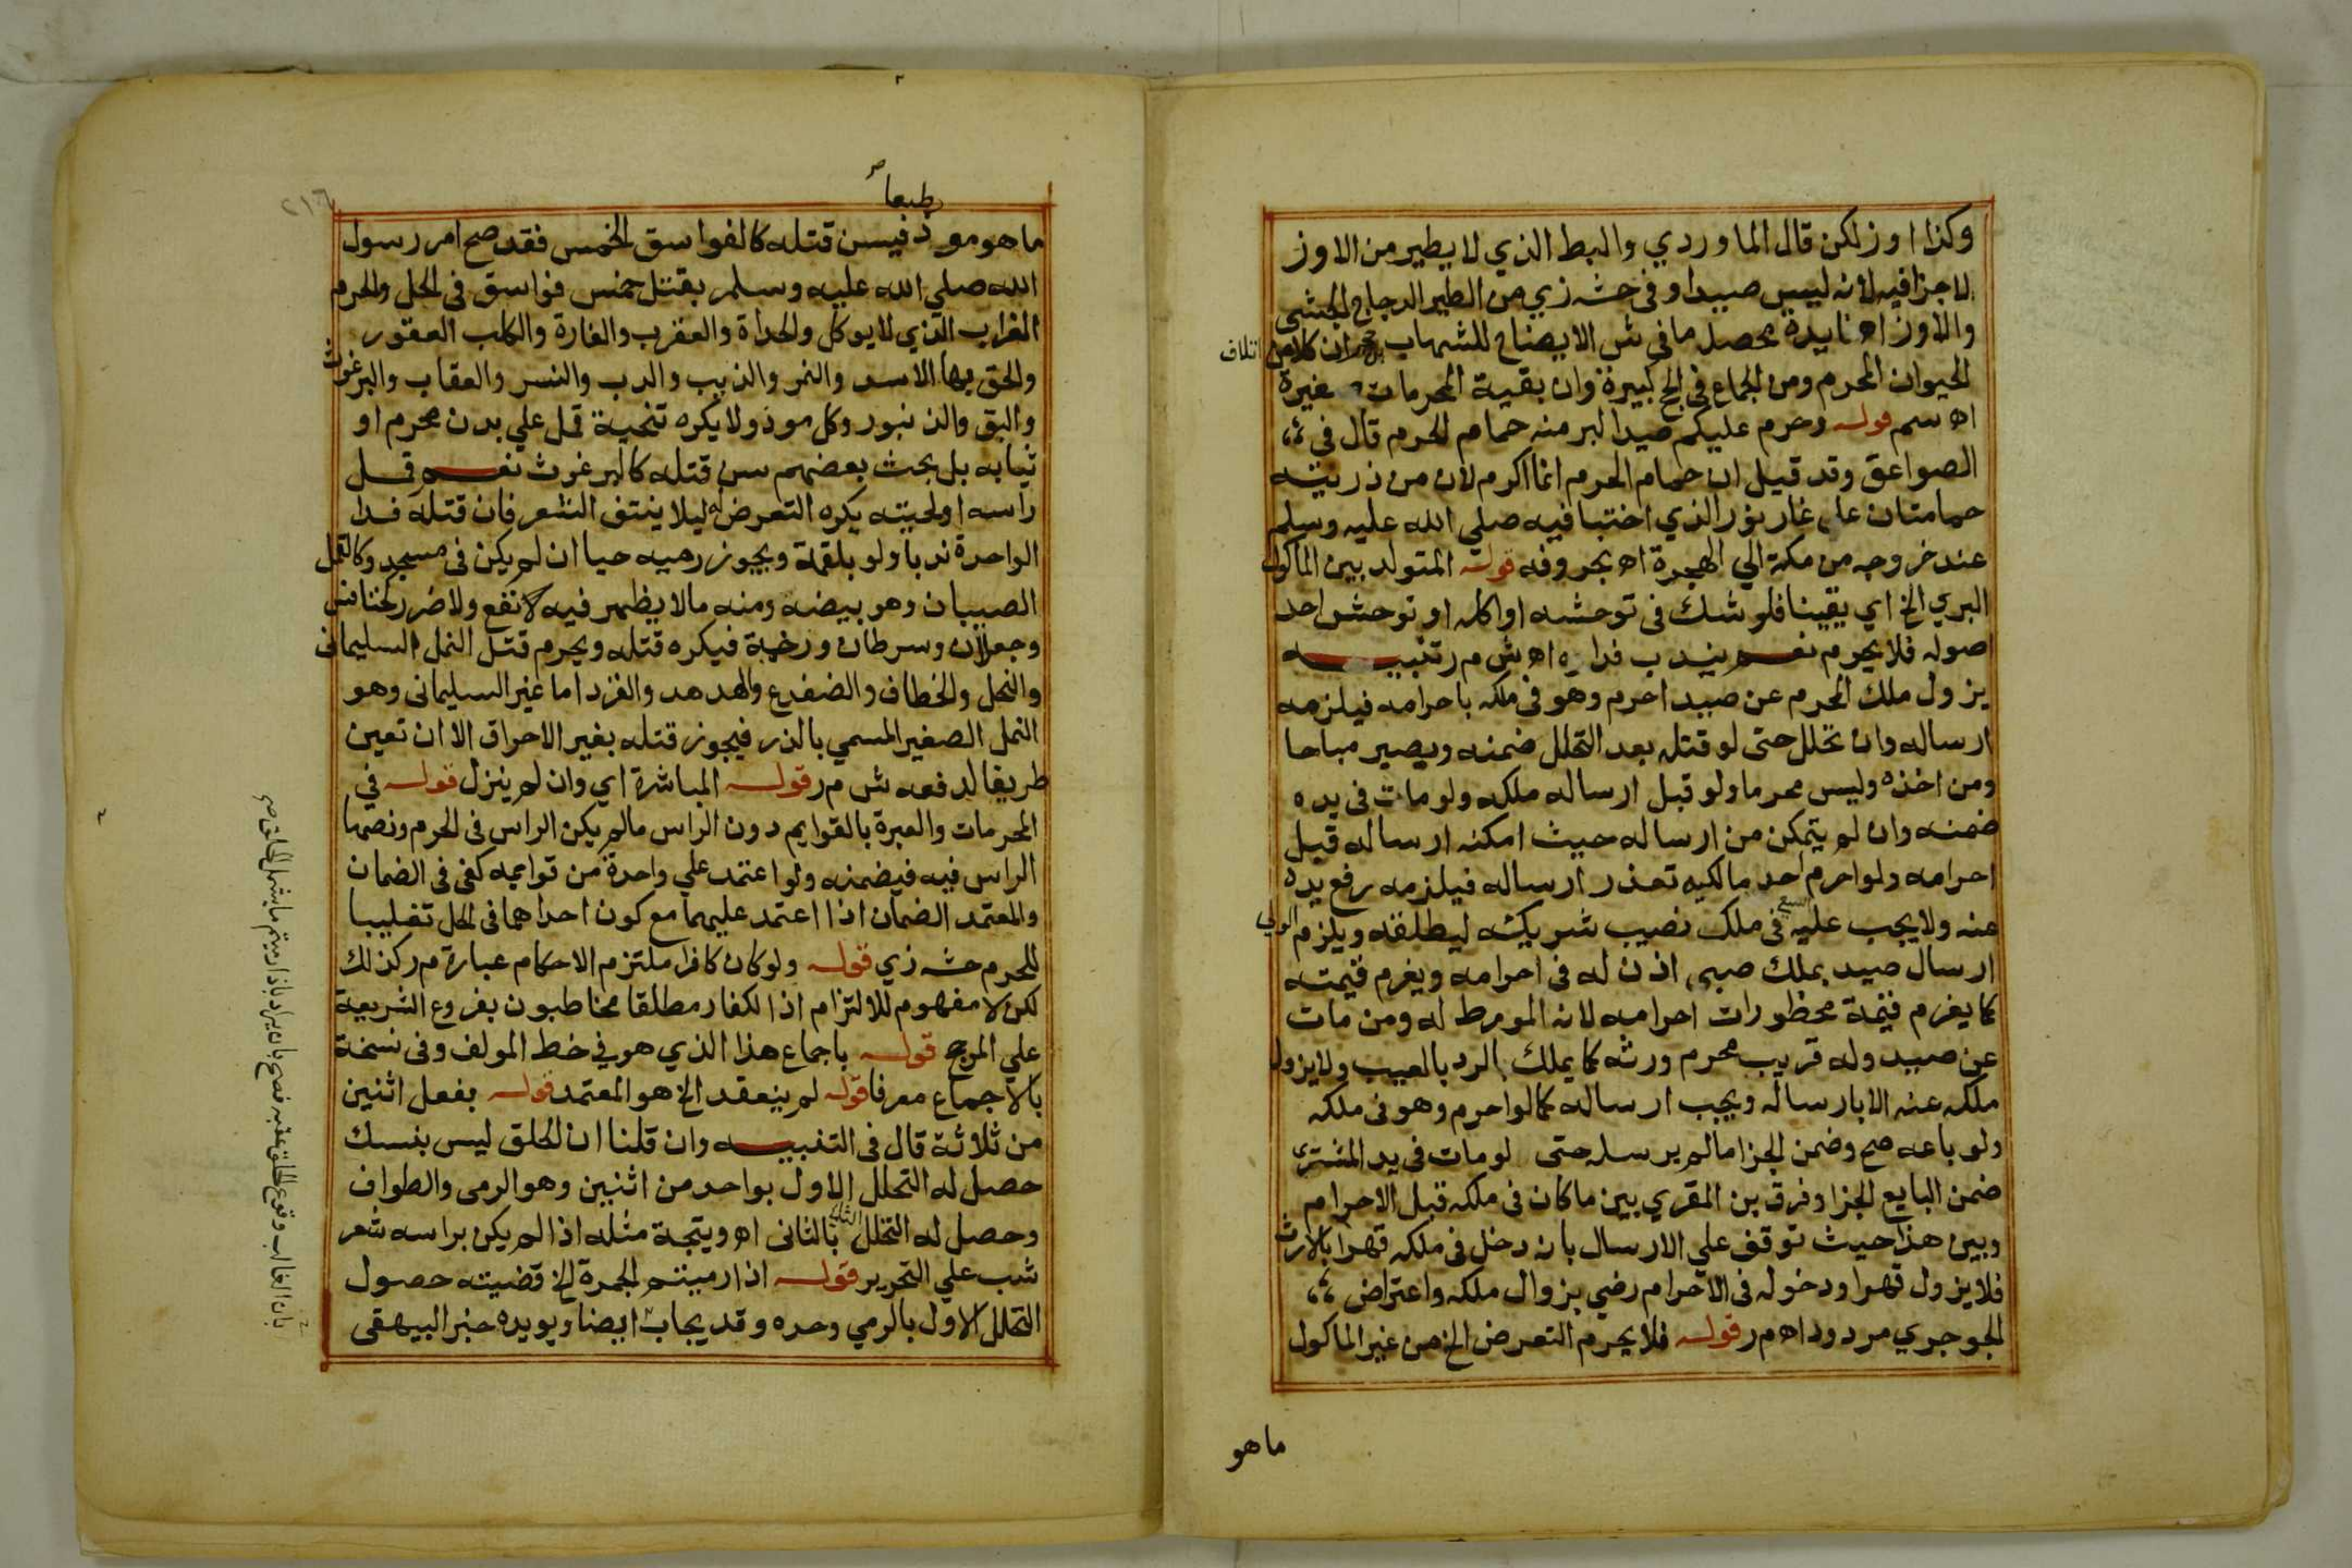 وكذا اوز لكن قال الماوردي والبط الذي لا يطير من الاوز
لا جزا فيه لانه ليس صيدا وفي حشه زي من الطير الدجاج الحبشي
والاوز اه فايدة محصل ما في ش الايضاح للشهاب حج ان كلا من اتلاف
الحيوان المحرم ومن الجماع في الحج كبيرة وان بقية المحرمات صغيرة
اه سم قوله وحرم عليكم صيد البر منه حمام الحرم قال في
الصواعق وقد قيل ان حمام الحرم انما اكرم لان من ذريته
حمامتان على غار ثور الذي اختبا فيه صلي الله عليه وسلم
عند خروجه من مكة الي الهجرة اه بحروفه قوله المتولد بين الماكول
البري الخ اي يقينا فلو شك في توحشه او اكله او توحش احد
اصوله فلا يحرم نعم يندب فداه اه ش م ر تنبيه
يزول ملك المحرم عن صيد احرم وهو في ملكه باحرامه فيلزمه
ارساله وان تحلل حتى لو قتله بعد التحلل ضمنه ويصير مباحا
ومن اخذه وليس محرما ولو قبل ارساله ملكه ولو مات في يده
ضمنه وان لم يتمكن من ارساله حيث امكنه ارساله قبل
احرامه ولو احرم احد مالكيه تعذر ارساله فيلزمه رفع يده
عنه ولا يجب عليه السعي في ملك نصيب شريكه ليطلقه ويلزم الولي
ارسال صيد بملك صبي اذن له في احرامه ويغرم قيمته
كما يغرم قيمة محظورات احرامه لانه المورط له ومن مات
عن صيد وله قريب محرم ورثه كما يملك الرد بالعيب ولا يزول
ملكه عنه الا بارساله ويجب ارساله كما لو احرم وهو في ملكه
ولو باعه صح وضمن الجزا ما لم يرسله حتى لو مات في يد المشتري
ضمن البايع الجزا وفرق بن المقري بين ما كان في ملكه قبل الاحرام
وبين هذا حيث توقف علي الارسال بانه دخل في ملكه قهرا بالارث
فلا يزول قهرا ودخوله في الاحرام رضي بزوال ملكه واعتراض
الجوجري مردود اه م ر قوله فلا يحرم التعرض الخ من غير الماكول
ما هو
طبعا صح
٢١٦
ما هو موذ فيسن قتله كالفواسق الخمس فقد صح امر رسول
الله صلي الله عليه وسلم بقتل خمس فواسق في الحل والحرم
الغراب الذي لا يوكل والحداة والعقرب والفارة والكلب العقور
والحق بها الاسد والنمر والذيب والدب والنسر والعقاب والبرغوث
والبق والزنبور وكل موذ ولا يكره تنحية قمل علي بدن محرم او
ثيابه بل بحث بعضهم سن قتله كالبرغوث نعم قمل
راسه او لحيته يكره التعرض له ليلا ينتف الشعر فان قتله فدا
الواحدة ندبا ولو بلقمة ويجوز رميه حيا ان لم يكن في مسجد وكالقمل
الصيبان وهو بيضه ومنه ما لا يظهر فيه نفع ولا ضرر كخنافس
وجعلان وسرطان ورخمة فيكره قتله ويحرم قتل النمل السليماني
والنحل والخطاف والضفدع والهدهد والقرد اما غير السليماني وهو
النمل الصغير المسمي بالذر فيجوز قتله بغير الاحراق الا ان تعين
طريقا لدفعه ش م ر قوله المباشرة اي وان لم ينزل قوله في
المحرمات والعبرة بالقوايم دون الراس ما لم يكن الراس في الحرم ونصها
الراس فيه فيضمنه ولو اعتمد علي واحدة من قوايمه كفي في الضمان
والمعتمد الضمان اذا اعتمد عليهما مع كون احداهما في الحل تغليبا
للحرم حشه زي قوله ولو كان كافرا ملتزم الاحكام عبارة م ر كذلك
لكن لا مفهوم للالتزام اذ الكفار مطلقا مخاطبون بفروع الشريعة
علي المرجح قوله باجماع هذا الذي هو في خط المولف وفي نسخة
بالاجماع معرفا قوله لم ينعقد الخ هو المعتمد قوله بفعل اثنين
من ثلاثة قال في التنبيه وان قلنا ان الحلق ليس بنسك
حصل له التحلل الاول بواحد من اثنين وهو الرمي والطواف
وحصل له التحلل الثاني بالثاني اه ويتجة مثله اذا لم يكن براسه شعر
شب علي التحرير قوله اذا رميتم الجمرة الخ قضيته حصول
التحلل الاول بالرمي وحده وقد يجاب ايضا ويويده خبر البيهقي
بان الغالب وقوع الحلق عقبه فصح بان يراد باذا رميتم ما يشمل الحلق صح